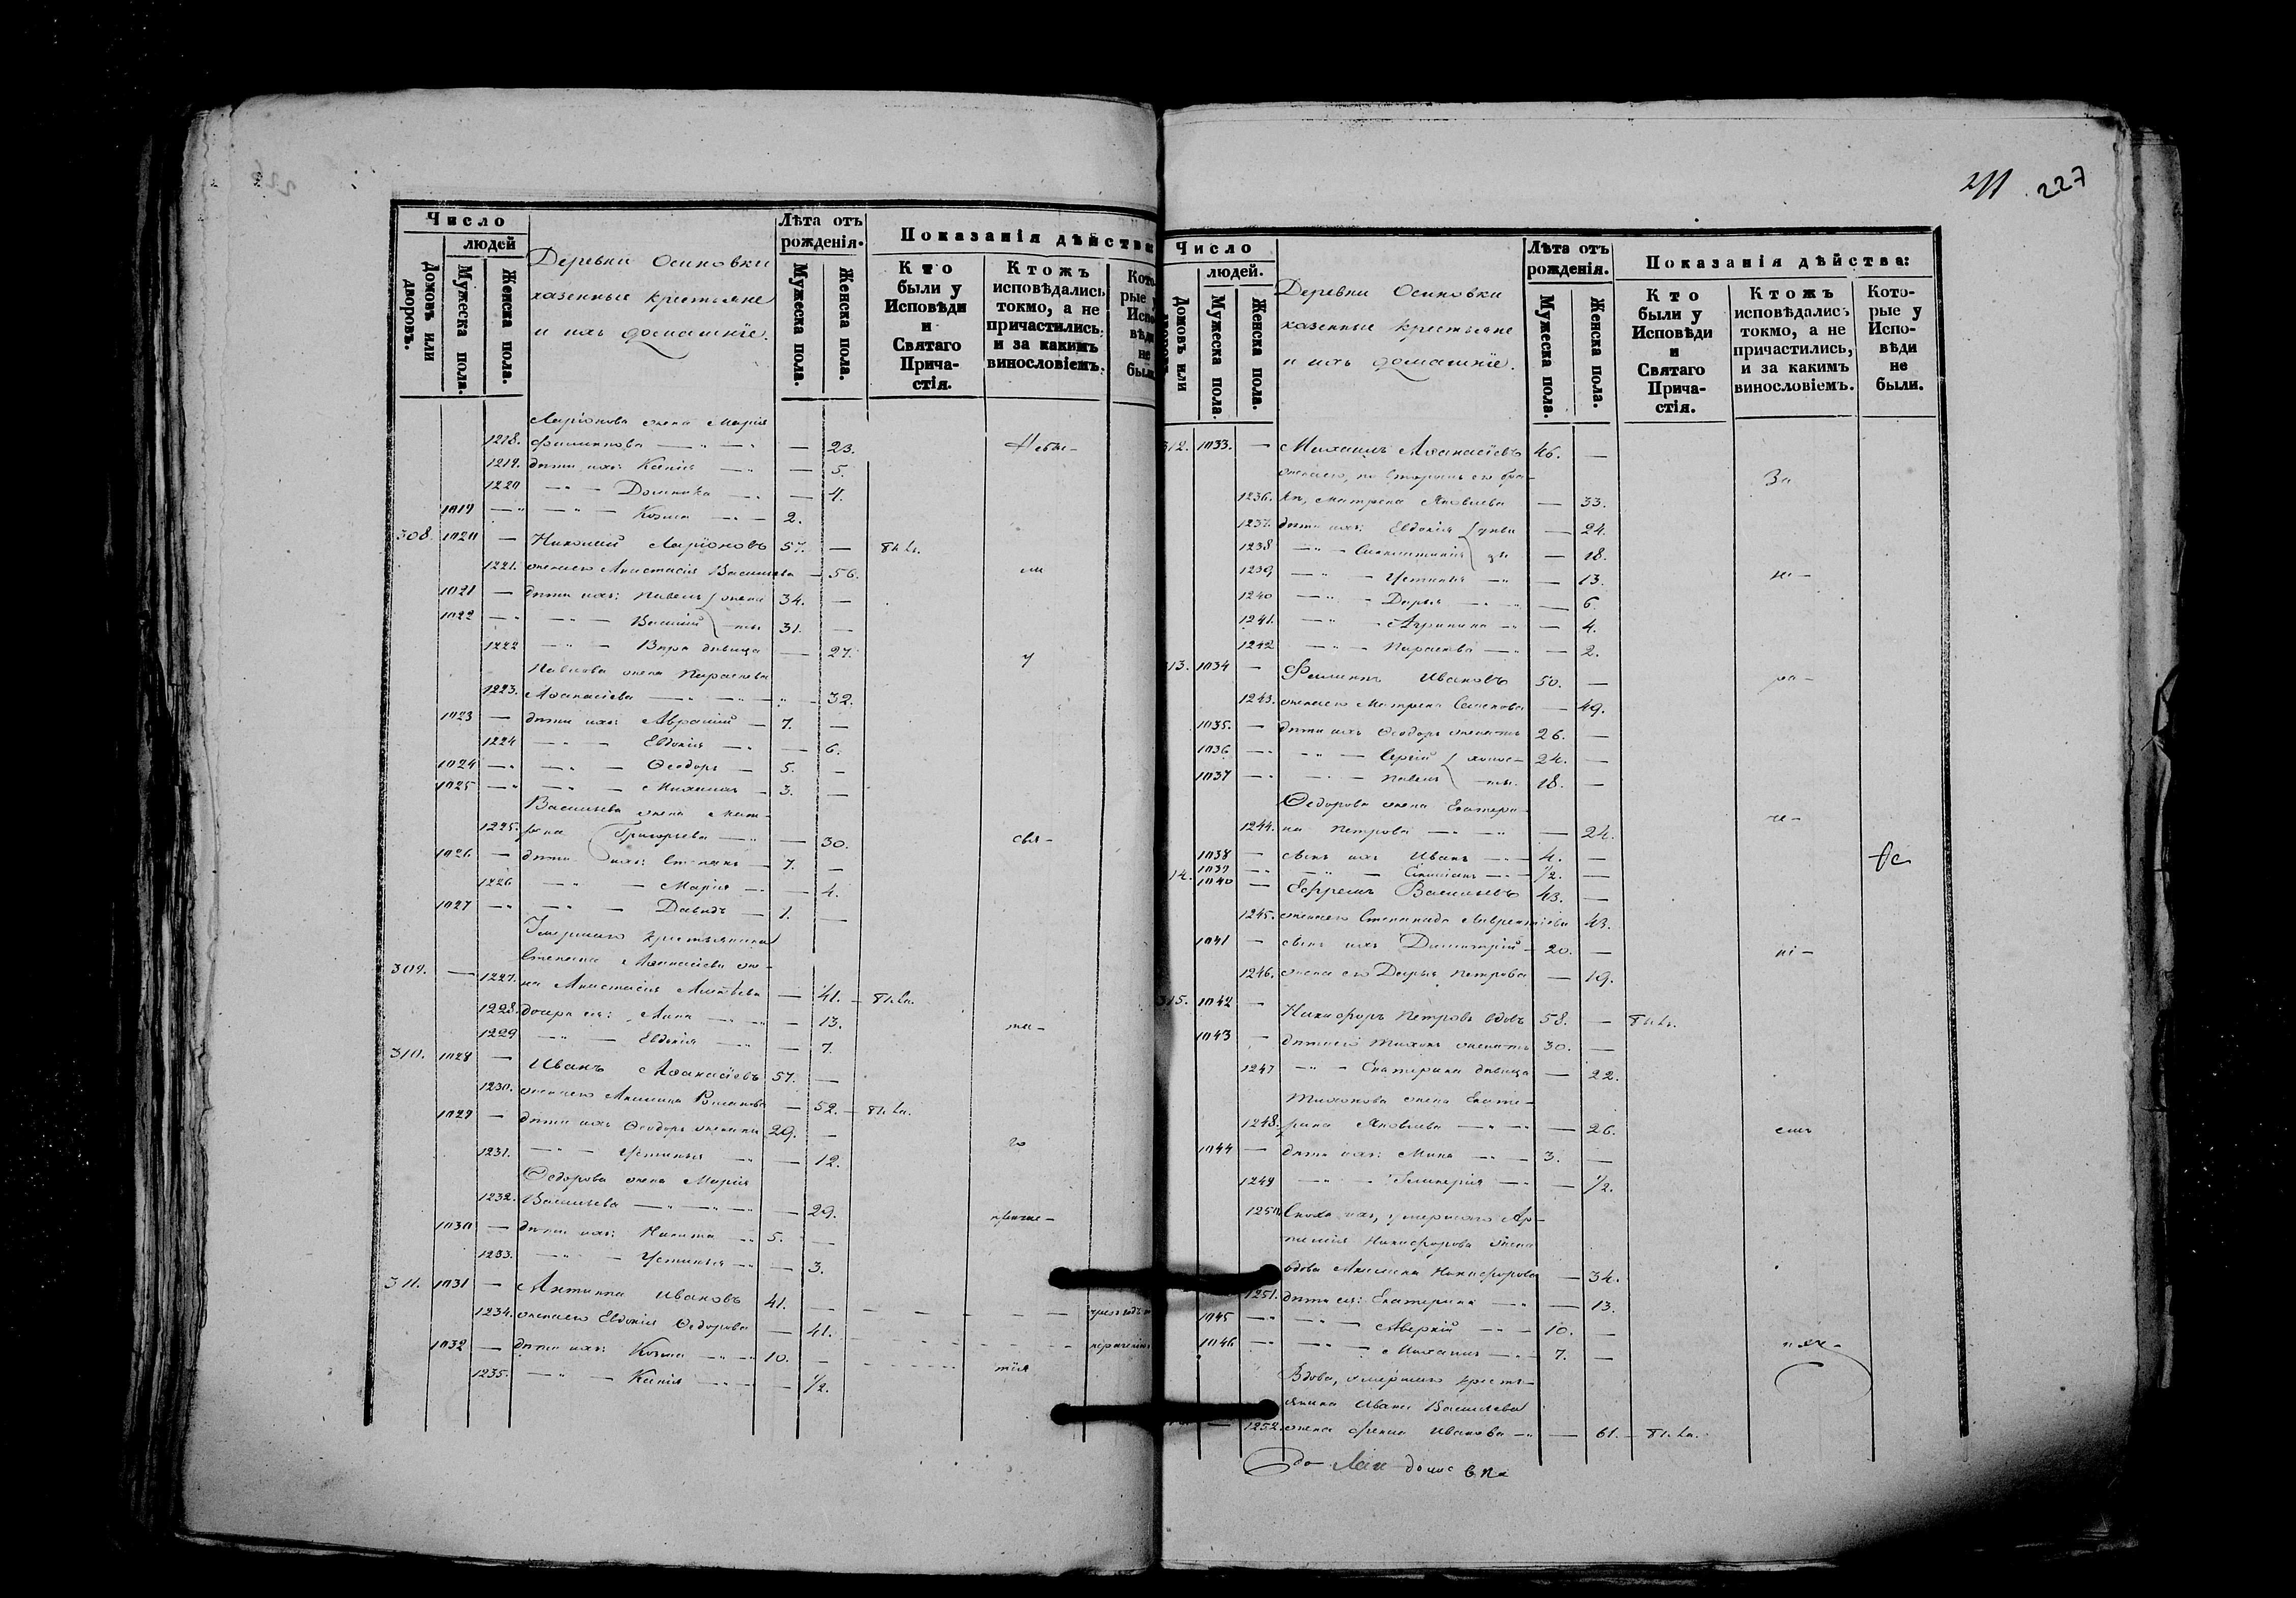 211 227
Число
людей
Домовъ или дворовъ.
Мужеска пола.
Женска пола.
Деревни Осиновки
казенные крестьяне
и ихъ домашніе.
Лѣта отъ
рожденія.
Мужеска пола.
Женска пола.
Показанія дѣйства
Кто
были у
Исповѣди
и
Святаго
Прича-
стія.
Ктожъ
исповѣдались
токмо, а не
причастились,
и за какимъ
винословіемъ.
Кото-
рые у
Испо-
вѣди
не
были.
Ларіонова жена Марія
1218. Филиппова — 23.
1219. дѣти ихъ: Ксенія — 5.
1220 — Домника — 4.
1019 — Козма — 2.
308. 1020 — Николай Ларіоновъ 57. —
1221. жена его Анастасія Васильева — 56.
1021 — дѣти ихъ: Павелъ 34. —
1022 — Василій 31. —
1222 — Вѣра дѣвица — 27.
Павлова жена Параскева
1223. Аѳанасіева — 32.
1023 — дѣти ихъ: Авраамій — 7. —
1224 — Евдокія — 6.
1024 — Ѳеодоръ — 5. —
1025 — Михаилъ — 3. —
Васильева жена Мат-
1225. рона Григорьева — 30. свя-
1026 — дѣти ихъ: Степанъ — 7. —
1226 — Марія — 4.
1027 — Давидъ — 1. —
Умершаго крестьянина
Степана Аѳанасіева же-
309. — 1227. на Анастасія — 41.
1228. дочери ея: Анна — 13.
1229 — Евдокія — 7.
310. 1028 — Иванъ Аѳанасіевъ 57. —
1230. жена его Акилина Романова — 52.
1029 — дѣти ихъ Ѳеодоръ женатъ 29. — го
1231. — Устинья — 12.
Ѳедорова жена Марія
1232. Васильева — 29. приче-
1030 — дѣти ихъ: Никита 5. —
1233. — Устинья — 3.
311. 1031 — Антипа Ивановъ 41. —
1234. жена его Евдокія Ѳедорова — 41.
1032 — дѣти ихъ: Козма — 10. — тія
1235. — Ксенія — 1/2.
Число
людей.
Домовъ или
Мужеска пола.
Женска пола.
Деревни Осиновки
казенные крестьяне
и ихъ домашніе.
Лѣта отъ
рожденія.
Мужеска пола.
Женска пола.
Показанія дѣйства:
Кто
были у
Исповѣди
и
Святаго
Прича-
стія.
Ктожъ
исповѣдались
токмо, а не
причастились,
и за какимъ
винословіемъ.
Кото-
рые у
Испо-
вѣди
не
были.
312. 1033. — Михаилъ Аѳанасіевъ 46. —
жена его, по второмъ его бра- За
1236. кѣ, Матрена Яковлева — 33.
1237. дѣти ихъ: Евдокія — 24.
1238 — 18.
1239 — Устинья — 13. не-
1240 — Дарья — 6.
1241. — Агрипина — 4.
1242 — Параскева — 2.
313. 1034 — Филиппъ Ивановъ 50. — ра-
1243. жена его Матрена Семенова — 49.
1035. — дѣти ихъ Ѳеодоръ женатъ 26. —
1036 — Сергій 24. —
1037 — Павелъ 18. —
Ѳедорова жена Екатери-
1244. на Петрова — 24.
1038 — сынъ ихъ Иванъ — 4. —
1039 — 1/2. —
14. 1040 — Ефремъ Васильевъ 43. —
1245. жена его Степанида Лаврентіева 43.
1041 — сынъ ихъ Димитрій — 20. — ні-
1246. жена его Дарья Петрова — 19.
315. 1042 — Никифоръ Петровъ вдовъ 58. —
1043 — дѣти его Тихонъ женатъ 30. —
1247 — Екатерина дѣвица — 22.
Тихонова жена Екате-
1248. рина Яковлева — 26. емъ
1044 — дѣти ихъ: Мина — 3. —
1249 — Гликерія — 1/2.
1250. Сноха ихъ, умершаго Ар-
темія Никифорова жена
вдова Акилина Никифорова — 34.
1251. дѣти ея: Екатерина — 13.
1045 — Аверкій — 10. —
1046 — Михаилъ — 7. —
Вдова, умершаго кресть-
янина Ивана Васильева
— 1252. жена Ѳекла Иванова — 61.